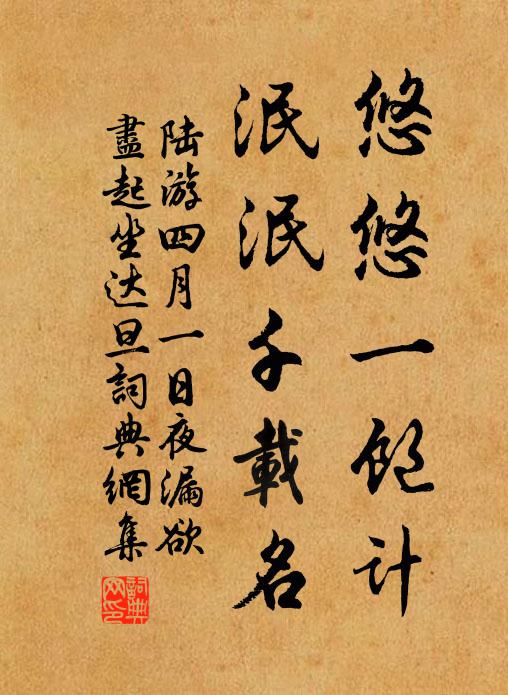 悠悠一飽计
泯泯千載名
陆游四月一日夜漏欲
盡起坐达旦詞典網集
詞典网印